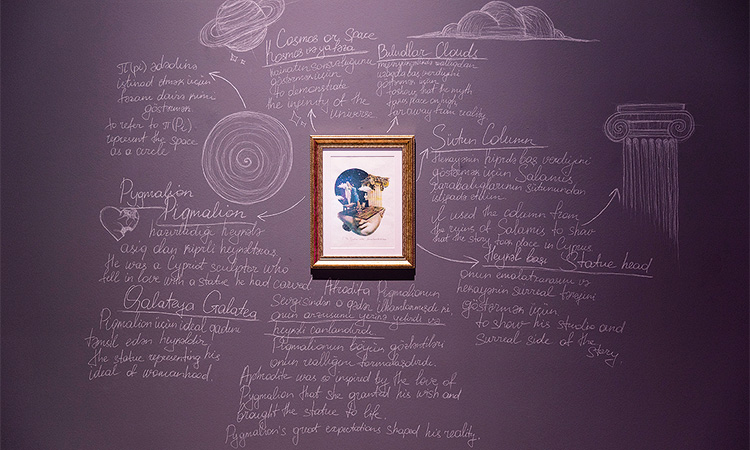 Cosmos or Space
Kosmos və ya fəza
göstərmək üçün
to demonstrate
the infinity of the
universe
Buludlar Clouds
göstərmək üçün
to show that the myth
takes place on high
far away from reality
π(pi) ədədinə
istinad etmək üçün
göstərmək
to refer to π(Pi)
represent the space
as a circle
Sütun Column
Hekayənin Kiprdə baş verdiyini
göstərmək üçün Salamis
xarabalıqlarının sütunundan
istifadə etdim
I used the column from
the ruins of Salamis to show
that the story took place in Cyprus
Heykəl başı Statue head
Onun emalatxanasını və
hekayənin surreal tərəfini
göstərmək üçün
to show his studio and
surreal side of the
story
Pygmalion
Piqmalion
hazırladığı heykələ
aşiq olan kiprli heykəltəraş
He was a Cypriot sculptor who
fell in love with a statue he had carved
Galateya Galatea
Pygmalion üçün ideal qadını
təmsil edən heykəldir
The statue representing his
ideal of womanhood.
Afrodita Piqmalionun
Sevgisindən o qədər ilhamlanmışdı ki,
onun arzusunu yerinə yetirdi və
heykəli canlandırdı
Piqmalionun böyük gözləntiləri
onun reallığını formalaşdırdı.
Aphrodite was so inspired by the love of
Pygmalion that she granted his wish and
brought the statue to life.
Pygmalion's great expectations shaped his reality.